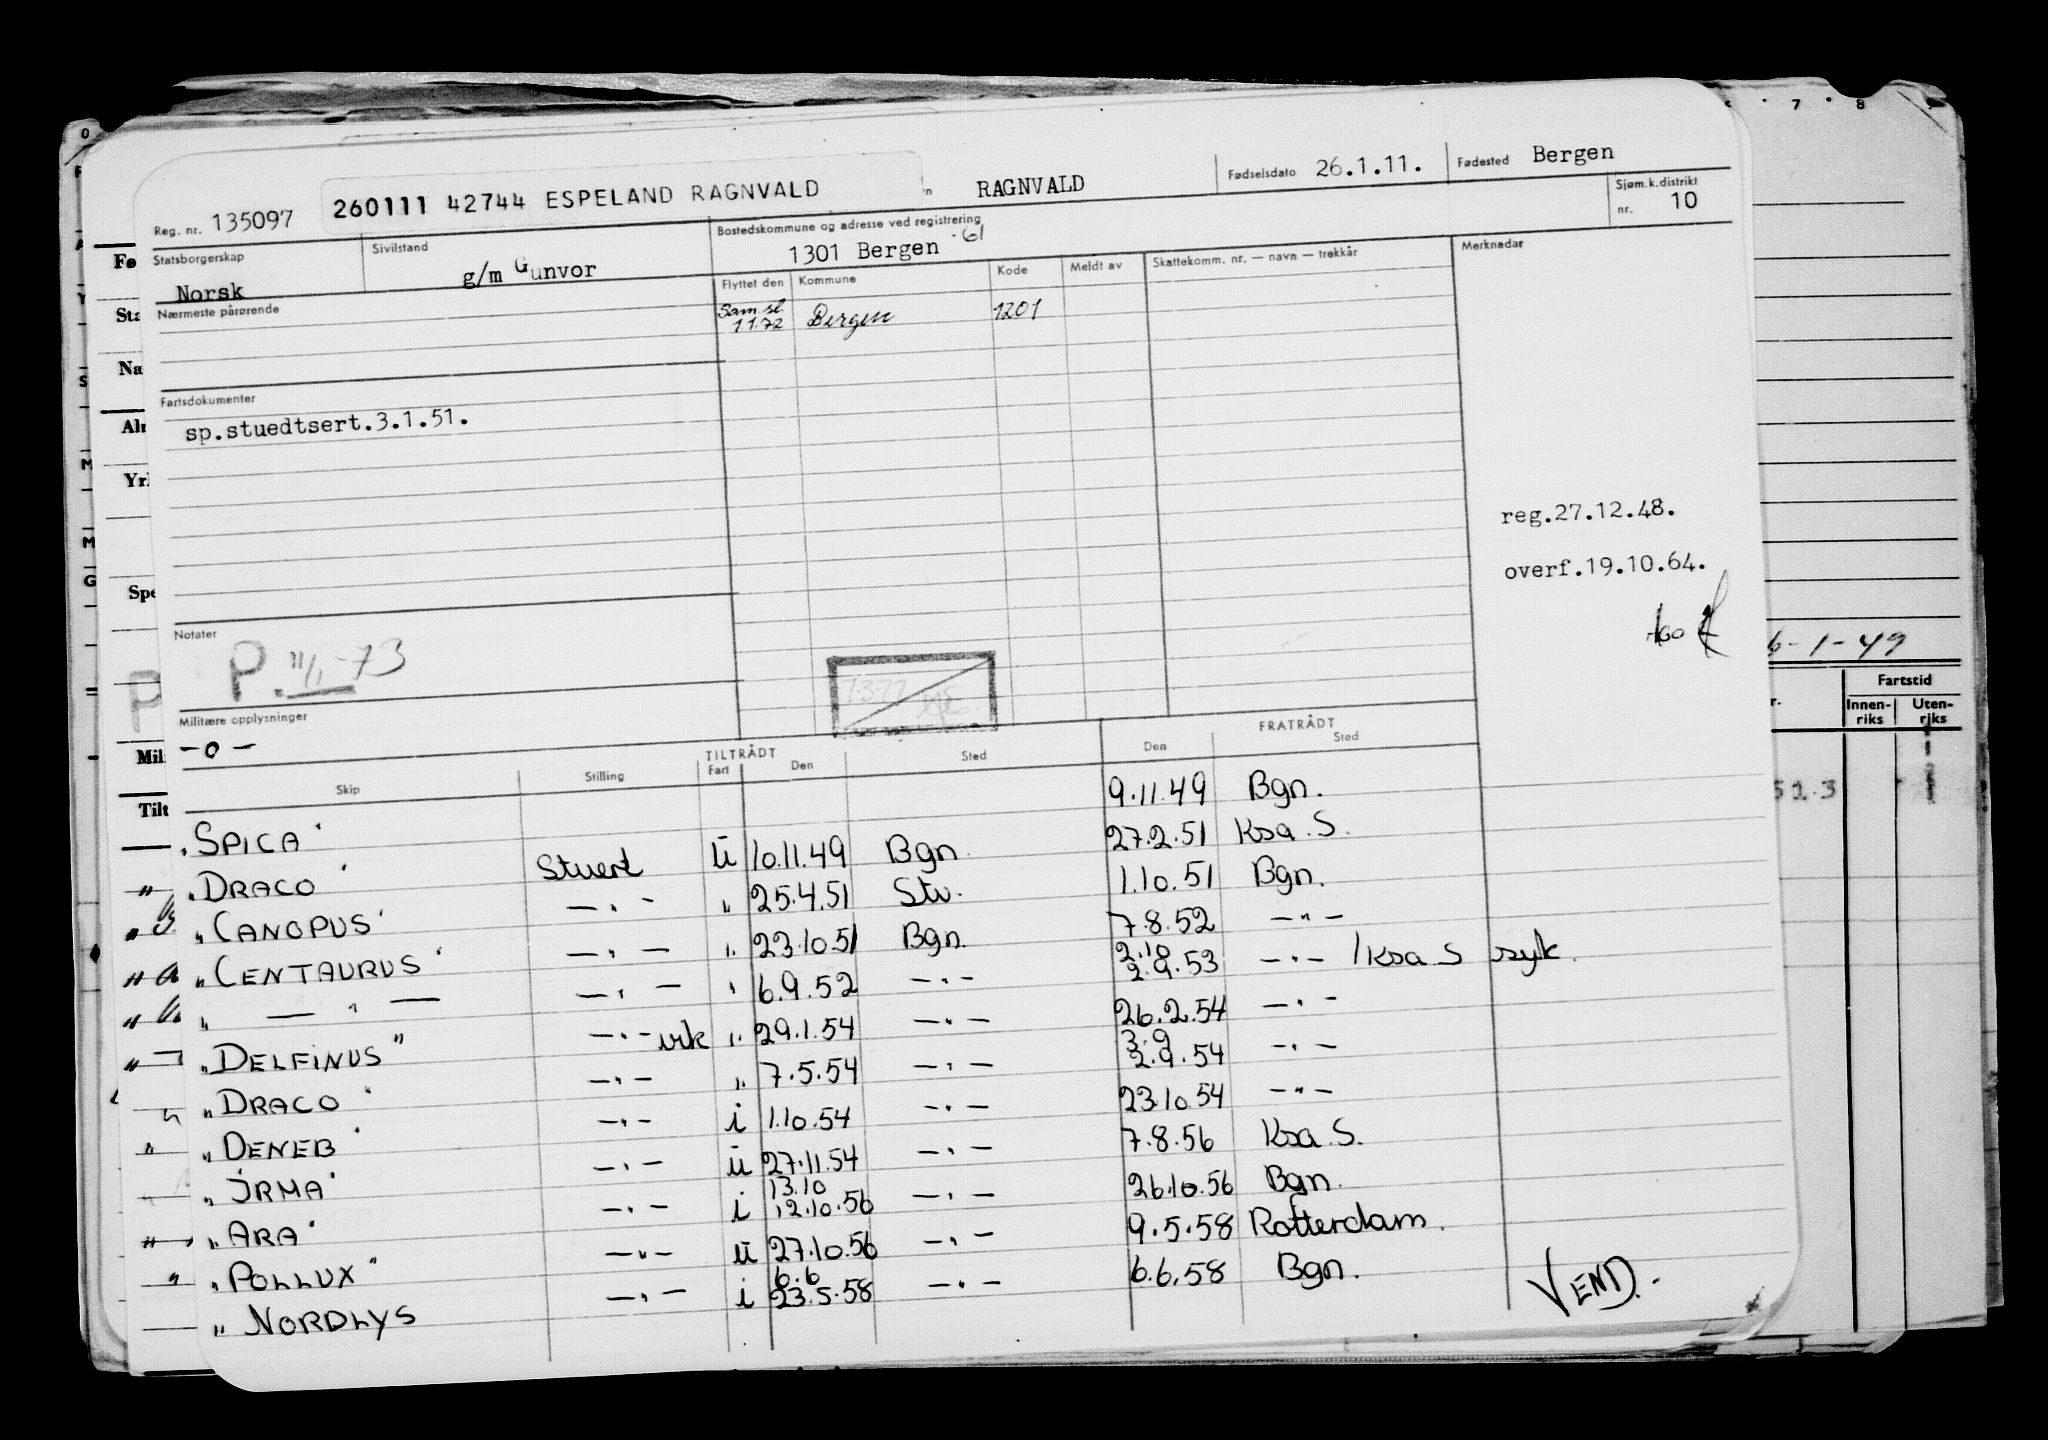 260111 42744 ESPELAND RAGNVALD
RAGNVALD
Fødselsdato 26.1.11.
Fødested Bergen
Reg. nr. 135097
Statsborgerskap Norsk
Sivilstand g/m Gunvor
Bostedskommune og adresse ved registrering
1301 Bergen -61
Sjøm.k.distrikt nr. 10
Nærmeste pårørende
Flyttet den Kommune Kode Meldt av Skattekomm. nr. — navn — trekkår Merknader
Sam.sl. 1.1.72 Bergen 1201
Fartsdokumenter
sp.stuedtsert.3.1.51.
reg.27.12.48.
overf.19.10.64.
Notater
P. 11/1-73
Militære opplysninger
- o -
TILTRÅDT FRATRÅDT
Skip Stilling Fart Den Sted Den Sted
9.11.49 Bgn.
" SPICA"
Stuert U 10.11.49 Bgn. 27.2.51 Ksa. S.
" DRACO"
— " — " 25.4.51 Stv. 1.10.51 Bgn.
" CANOPUS"
— " — " 23.10.51 Bgn. 7.8.52 — " —
" CENTAURUS"
— " — " 6.9.52 — " — 2.10 2.9.53 — " — / Ksa S syk.
" — " —
— " — vik " 29.1.54 — " — 26.2.54 — " —
" DELFINUS"
— " — " 7.5.54 — " — 3.9 2.9.54 — " —
" DRACO"
— " — i 1.10.54 — " — 23.10.54 — " —
" DENEB"
— " — U 27.11.54 — " — 7.8.56 Ksa. S.
" IRMA"
— " — i 13.10 12.10.56 — " — 26.10.56 Bgn.
" ARA"
— " — U 27.10.56 — " — 9.5.58 Rotterdam.
" POLLUX"
— " — i 6.6 23.5.58 — " — 6.6.58 Bgn.
" NORDLYS
VEND.
6-1-49
Fartstid
Innen-riks Uten-riks
51.3
7 8